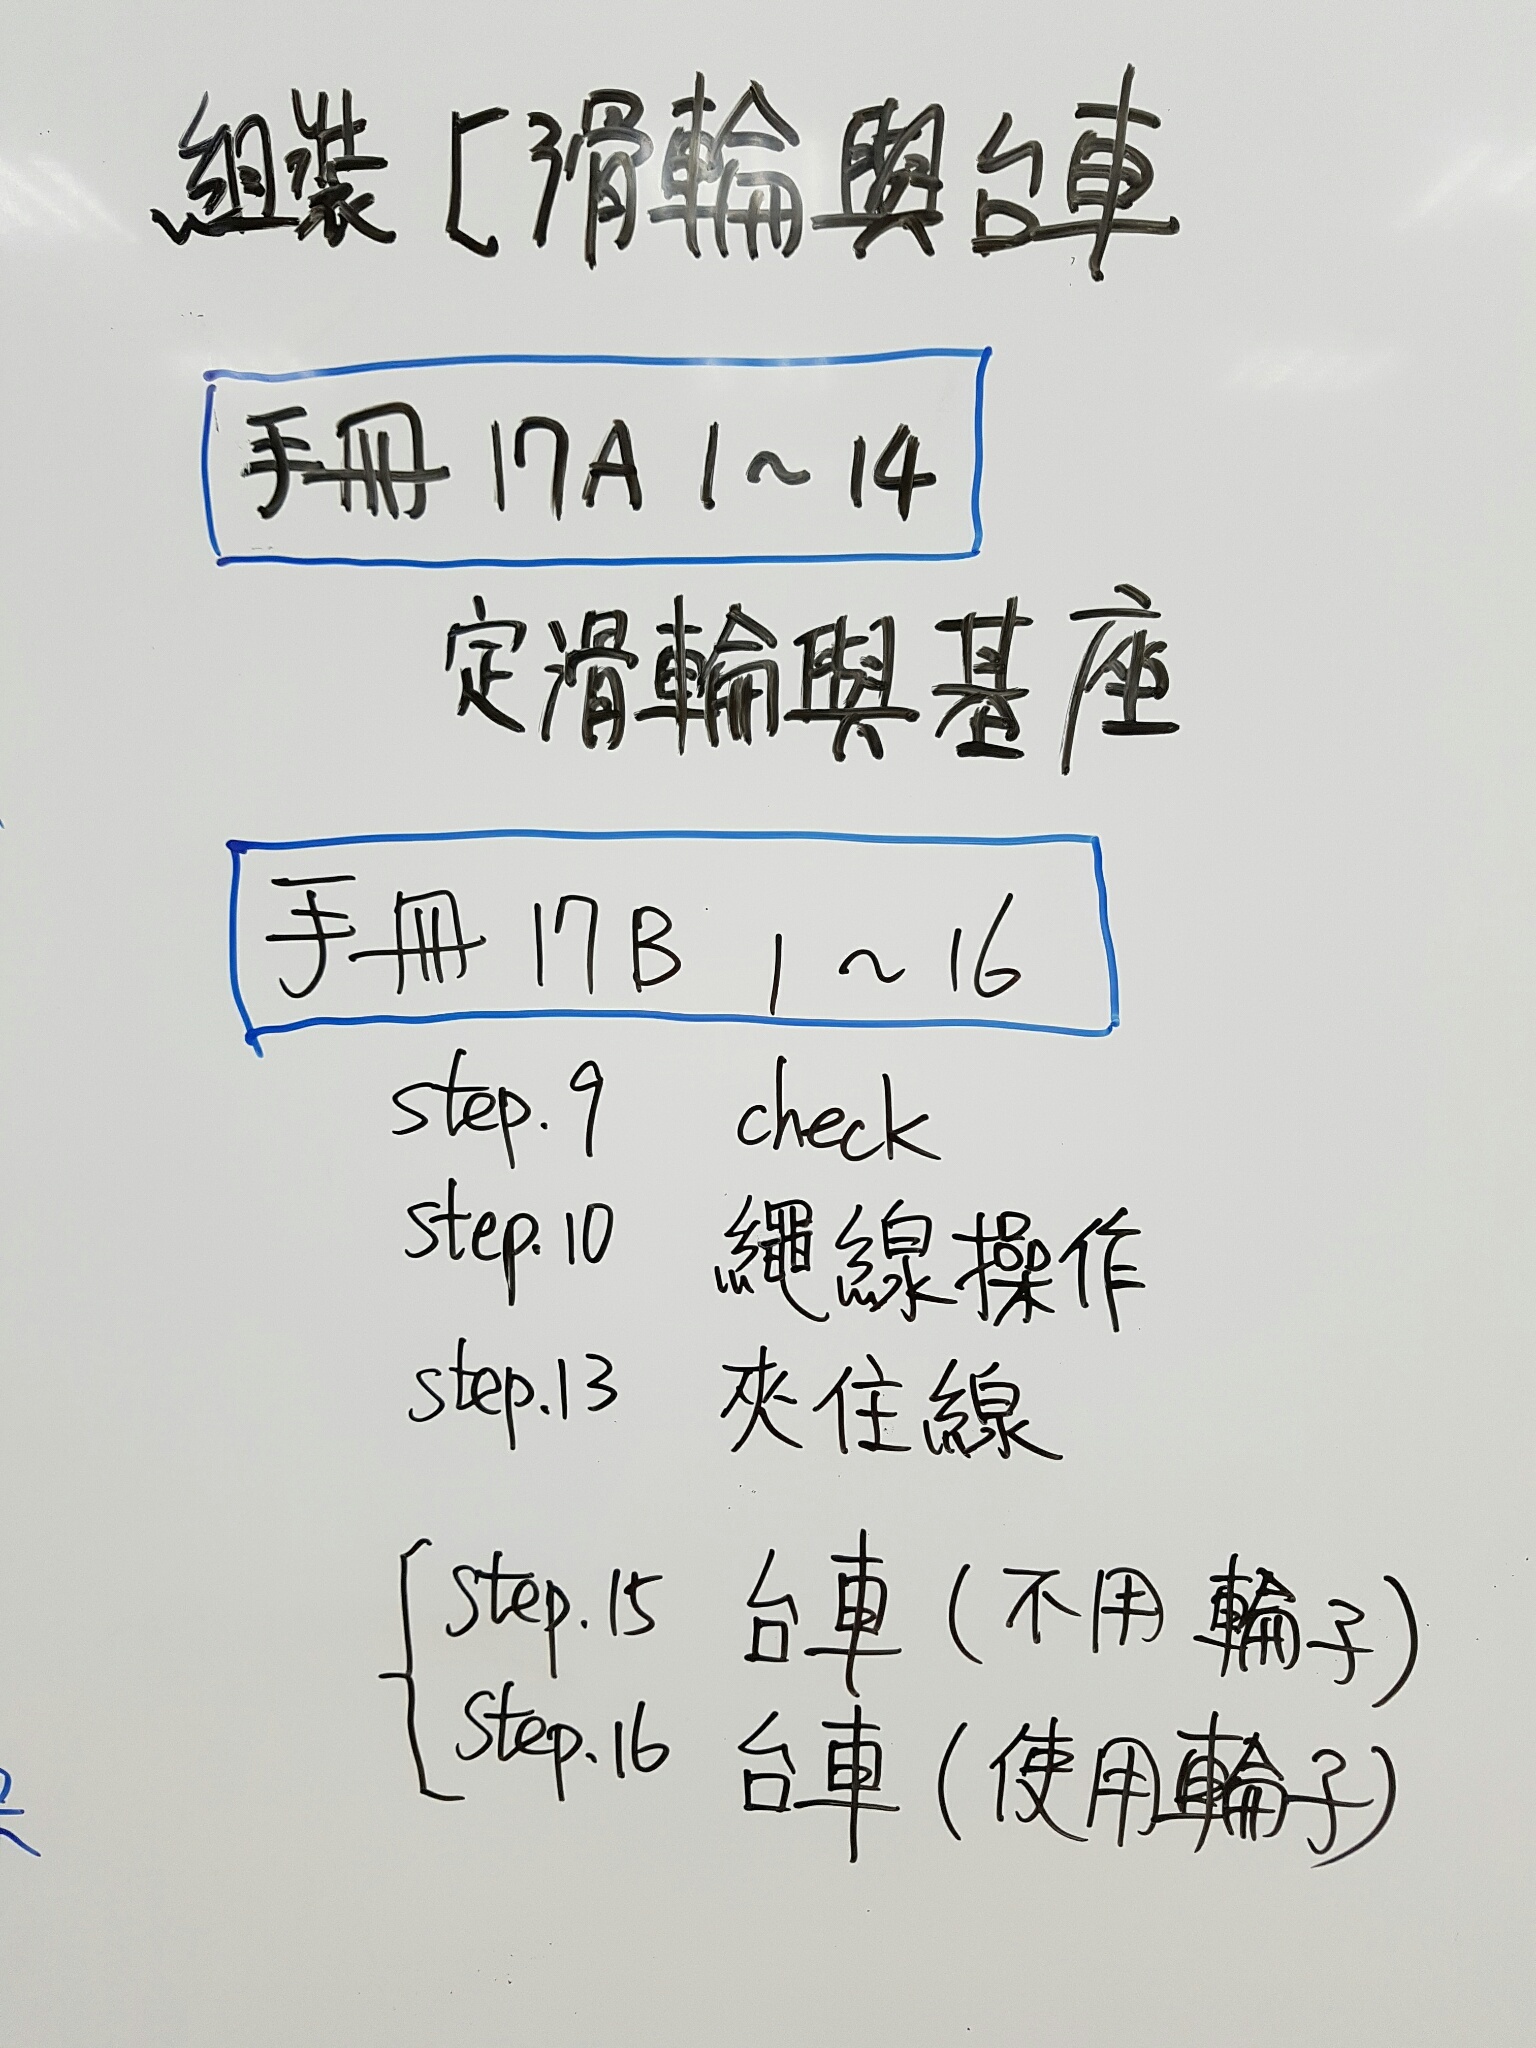 組裝[滑輪與台車
手冊 17A 1~14
定滑輪與基座
手冊 17B 1~16
step.9 check
step.10 繩線操作
step.13 夾住線
step.15 台車(不用輪子)
step.16 台車(使用輪子)